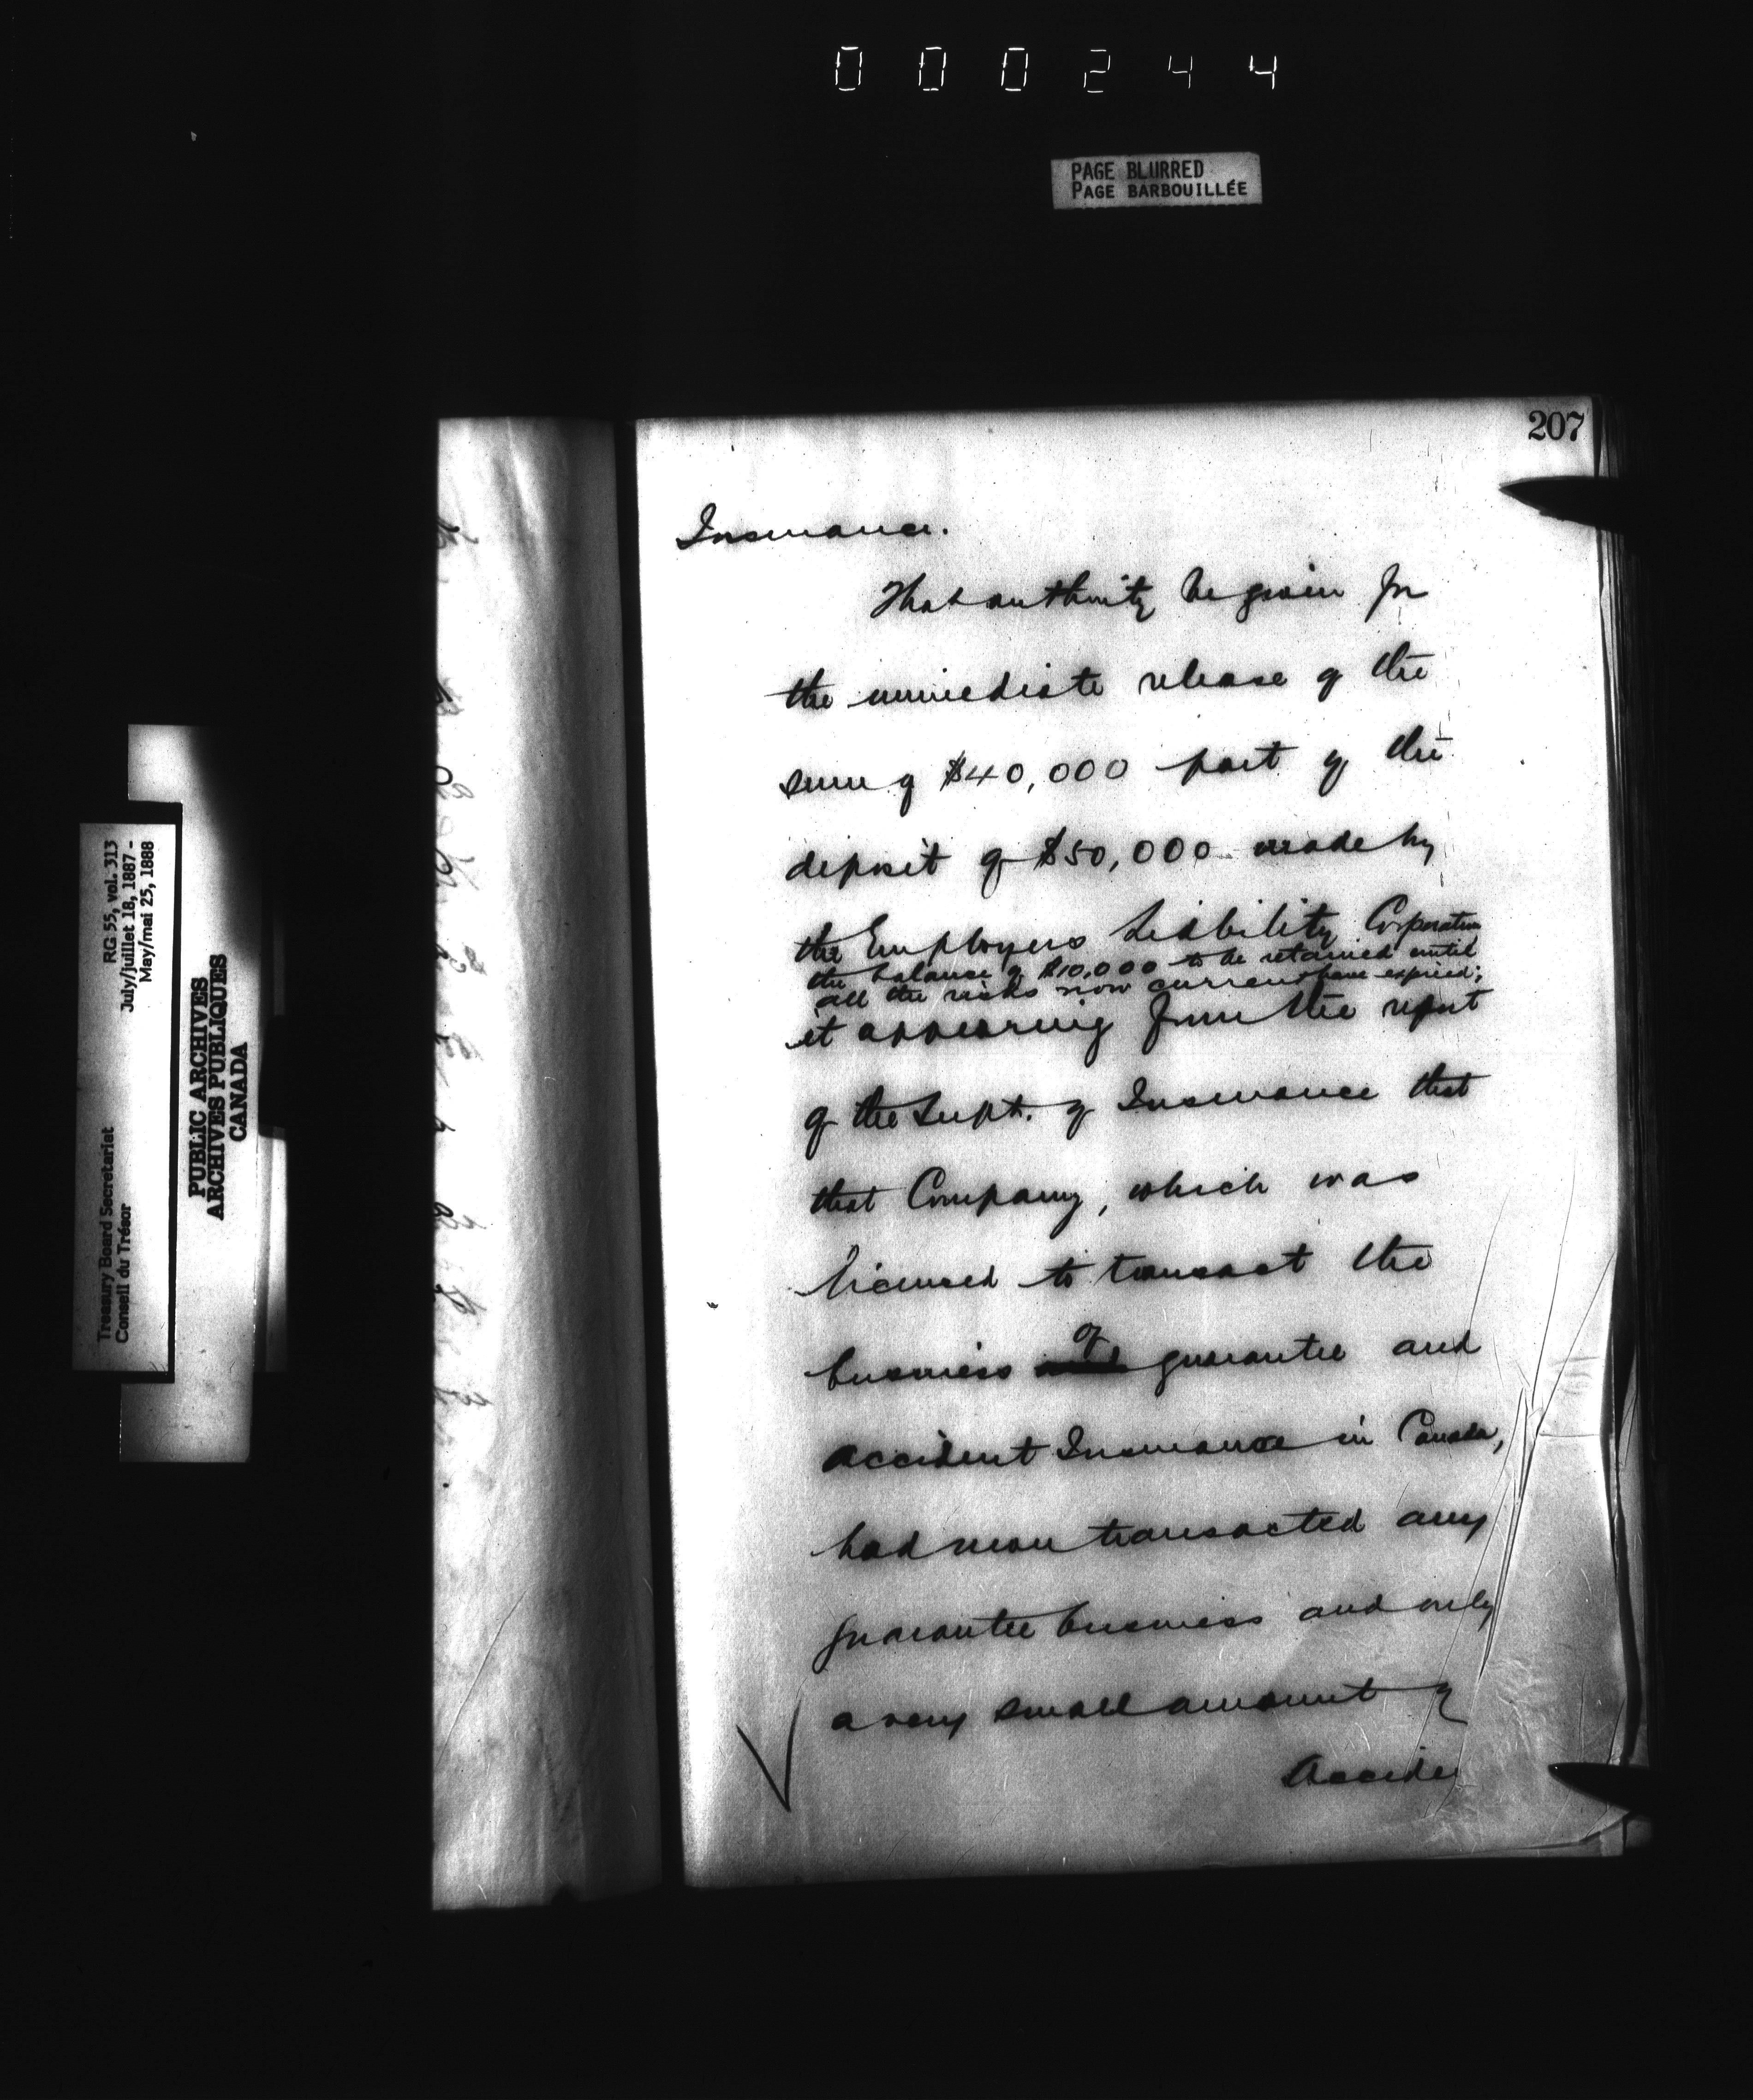 000244
PAGE BLURRED
PAGE BARBOUILLÉE
207
Insurance.
That authority be given for
the immediate release of the
sum of $40,000 part of the
deposit of $50,000 made by
the Employers Liability Corporation
the balance of $10,000 to be retained until
all the risks now current have expired;
it appearing from the report
of the Supt. of Insurance that
that Company, which was
licensed to transact the
business of guarantee and
accident Insurance in Canada,
had never transacted any
guarantee business and only
a very small amount of
Accident
RG 55, vol. 313
July/juillet 18, 1887 -
May/mai 25, 1888
Treasury Board Secretariat
Conseil du Trésor
PUBLIC ARCHIVES
ARCHIVES PUBLIQUES
CANADA